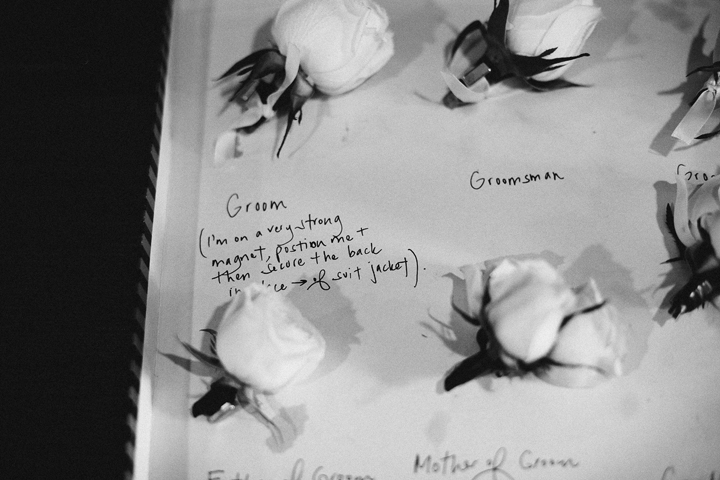 Groomsman
Gro
Groom
(I'm on a very strong
magnet, postion me +
then secure the back
→ of suit jacket).
Mother of Groom
Father of Groom